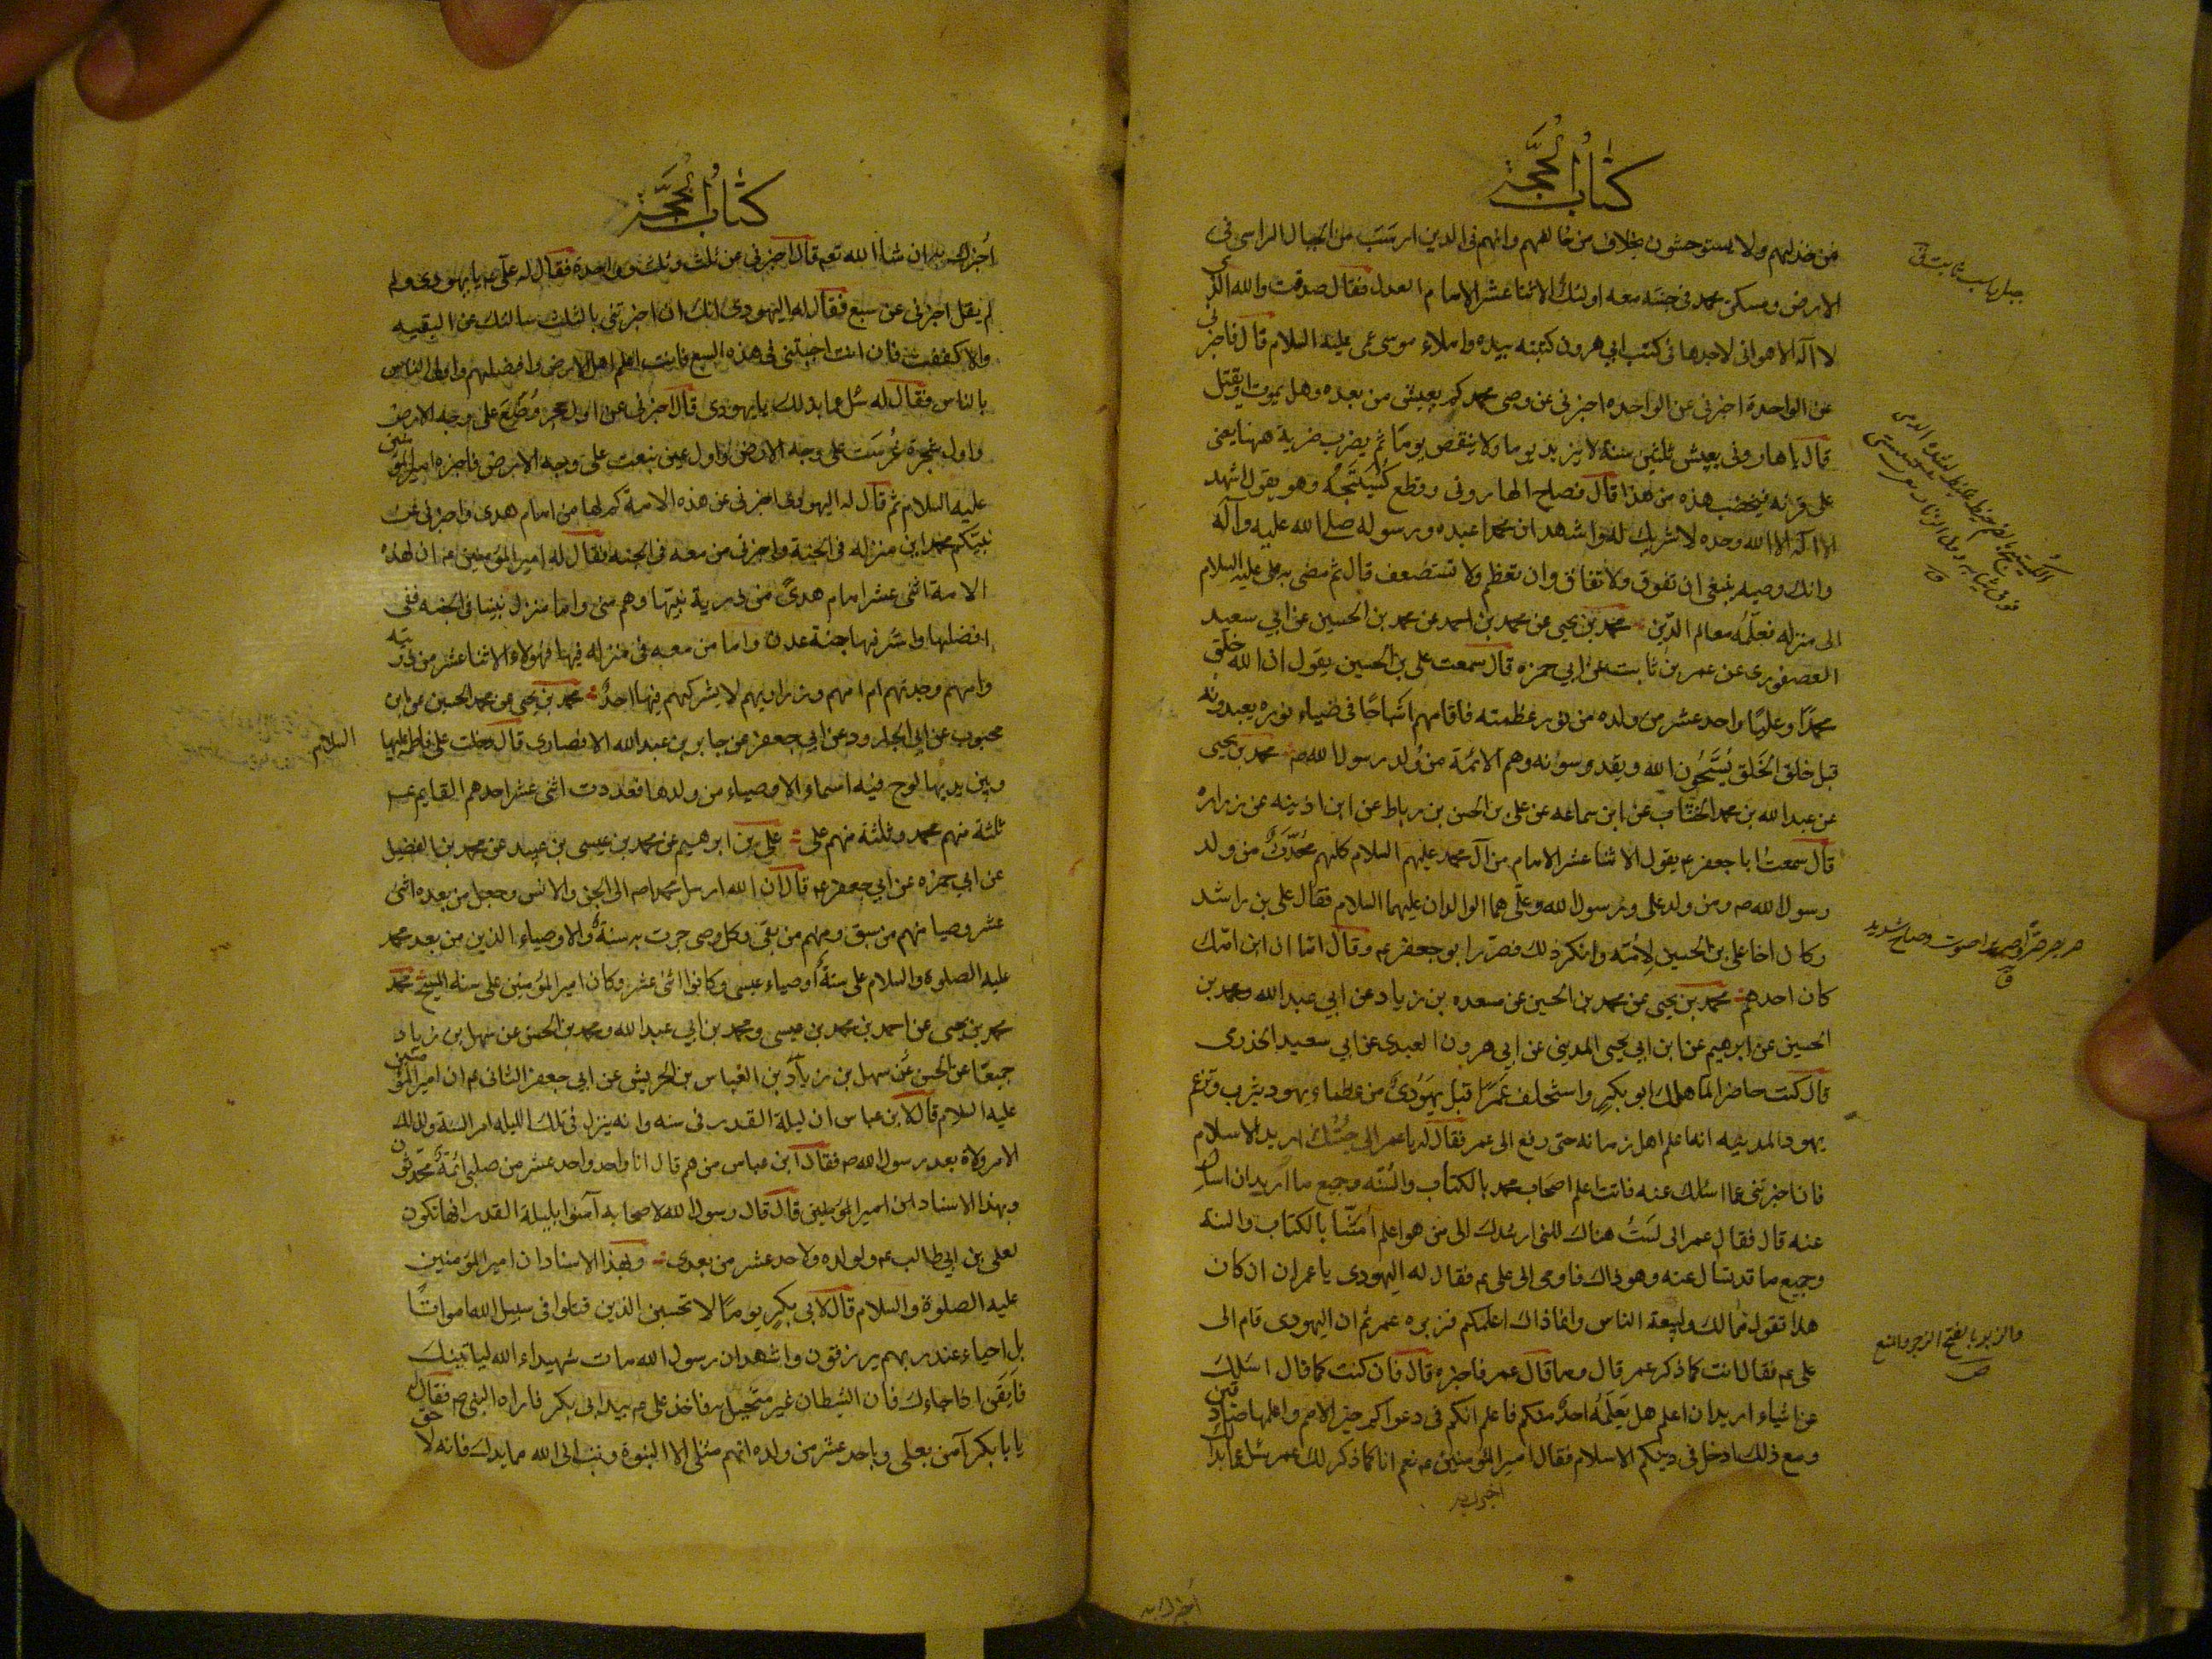 كتاب الحجة
من خذلهم ولا يستوحشون بخلاف من خالفهم وانهم في الدين ارسب من الجبال الراسي في
الارض ومسكن محمد في جنته معه اولئك الاثنا عشر الامام العدل فقال صدقت والله الذي
لا اله الا هو اني لاجدها في كتب ابي هرون كتبته بيده واملاء موسى عمي عليه السلام قال فاخبرني
عن الواحدة اخبرني عن الواحده اخبرني عن وصي محمد كم يعيش من بعده وهل يموت او يقتل
قال يا هاروني يعيش ثلثين سنة لا يزيد يوما ولا ينقص يوما ثم يضرب ضربة ههنا يعني
على قرنه فيخضب هذه من هذا قال فصاح الهاروني وقطع كستيجه وهو يقول اشهد
ان لا اله الا الله وحده لا شريك له واشهد ان محمدا عبده ورسوله صلى الله عليه وآله
وانك وصيه ينبغي ان تفوق ولا تفاق وان تعظم ولا تستضعف قال ثم مضى به علي عليه السلام
الى منزله فعلمه معالم الدين محمد بن يحيى عن محمد بن احمد عن محمد بن الحسين عن ابي سعيد
العصفوري عن عمر بن ثابت عن ابي حمزه قال سمعت علي بن الحسين يقول ان الله خلق
محمدا وعليا واحد عشر من ولده من نور عظمته فاقامهم اشباحا في ضياء نوره يعبدونه
قبل خلق الخلق يسبحون الله ويقدسونه وهم الائمة من ولد رسول الله ص محمد بن يحيى
عن عبد الله بن محمد الخشاب عن ابن سماعه عن علي بن الحسن بن رباط عن ابن اذينه عن زراره
قال سمعت ابا جعفر ع يقول الاثنا عشر الامام من آل محمد عليهم السلام كلهم محدث من ولد
رسول الله ص ومن ولد علي ورسول الله وعلي هما الوالدان عليهما السلام فقال علي بن راشد
وكان اخا علي بن الحسين لامه وانكر ذلك فصرر ابو جعفر ع وقال اما ان ابن امك
كان احدهم محمد بن يحيى عن محمد بن الحسين عن مسعده بن زياد عن ابي عبد الله ومحمد بن
الحسين عن ابرهيم عن ابن ابي يحيى المديني عن ابي هرون العبدي عن ابي سعيد الخدري
قال كنت حاضرا لما هلك ابو بكر واستخلف عمر اقبل يهودي من عظماء يهود يثرب وتزعم
يهود المدينه انه اعلم اهل زمانه حتى رفع الى عمر فقال له يا عمر اني جئتك اريد الاسلام
فان اخبرتني عما اسئلك عنه فانت اعلم اصحاب محمد بالكتاب والسنه وجميع ما اريد ان اسال
عنه قال فقال عمر اني لست هناك لكني ارشدك الى من هو اعلم امتنا بالكتاب والسنه
وجميع ما قد تسال عنه وهو ذاك فاومى الى علي ع فقال له اليهودي يا عمر ان كان
هذا تقول فما لك ولبيعة الناس وانما ذاك اعلمكم فزبره عمر ثم ان اليهودي قام الى
علي ع فقال انت كما ذكر عمر قال وما قال عمر فاخبره قال فان كنت كما قال اسئلك
عن اشياء اريد ان اعلم هل يعلمه احد منكم فاعلم انكم في دعواكم خير الامم واعلمها صادقين
ومع ذلك ادخل في دينكم الاسلام فقال امير المؤمنين ع نعم انا كما ذكر لك عمر سل عما بدا لك
اخبرك به
جبل راسب ثابت ق
والزبر بالفتح الزجر والمنع
ص
كتاب الحجة
اخبرك به ان شاء الله تع قال اخبرني عن ثلث وثلث وواحدة فقال له علي ع يا يهودي ولم
لم يقل اخبرني عن سبع فقال له اليهودي انك ان اخبرتني بالثلث سالتك عن البقيه
والا كففت فان انت اجبتني في هذه السبع فانت اعلم اهل الارض وافضلهم واولى الناس
بالناس فقال له سل عما بدا لك يا يهودي قال اخبرني عن اول حجر وضع على وجه الارض
واول شجرة غرست على وجه الارض واول عين نبعت على وجه الارض فاخبره امير المؤمنين
عليه السلام ثم قال له اليهودي اخبرني عن هذه الامة كم لها من امام هدى واخبرني عن
نبيكم محمد اين منزله في الجنة واخبرني من معه في الجنه فقال له امير المؤمنين ع ان لهذه
الامة اثنى عشر امام هدى من ذرية نبيها وهم مني واما منزل نبينا في الجنه ففي
افضلها واشرفها جنة عدن واما من معه في منزله فيها فهولاء الاثنا عشر من ذريته
وامهم وجدتهم ام امهم وذراريهم لا يشركهم فيها احد محمد بن يحيى عن محمد الحسين عن ابن
محبوب عن ابي الجارود عن ابي جعفر عن جابر بن عبد الله الانصاري قال دخلت على فاطمه عليها السلام
وبين يديها لوح فيه اسماء الاوصياء من ولدها فعددت اثنى عشر احدهم القايم ع
ثلثة منهم محمد وثلثة منهم علي علي بن ابرهيم عن محمد بن عيسى بن عبيد عن محمد بن الفضيل
عن ابي حمزه عن ابي جعفر ع قال ان الله ارسل محمدا ص الى الجن والانس وجعل من بعده اثنى
عشر وصيا منهم من سبق ومنهم من بقي وكل وصي جرت به سنة والاوصياء الذين من بعد محمد
عليه الصلوة والسلام على سنة اوصياء عيسى وكانوا اثنى عشر وكان امير المؤمنين على سنة المسيح محمد
محمد بن يحيى عن احمد بن محمد بن عيسى ومحمد بن ابي عبد الله ومحمد بن الحسن عن سهل بن زياد
جميعا عن الحسن عن سهل بن زياد بن العباس بن الحريش عن ابي جعفر الثاني ع ان امير المؤمنين
عليه السلام قال لابن عباس ان ليلة القدر في سنه وانه ينزل في تلك الليله امر السنة ولذلك
الامر ولاة بعد رسول الله ص فقال ابن عباس من هم قال انا واحد واحد عشر من صلبي ائمة محدثون
وبهذا الاسناد ان امير المؤمنين قال قال رسول الله لاصحابه آمنوا بليلة القدر انها تكون
لعلي بن ابي طالب ع ولولده ولاحد عشر من بعدي وبهذا الاسناد ان امير المؤمنين
عليه الصلوة والسلام قال لابي بكر يوما لا تحسبن الذين قتلوا في سبيل الله امواتا
بل احياء عند ربهم يرزقون واشهد ان رسول الله مات شهيدا والله لياتينك
فايقن اذا جاءك فان الشيطان غير متخيل به فاخذ علي ع بيد ابي بكر فاراه النبي ص فقال
يا با بكر آمن بعلي وباحد عشر من ولده انهم مثلي الا النبوة وتب الى الله مما بيدك فانه لا حق